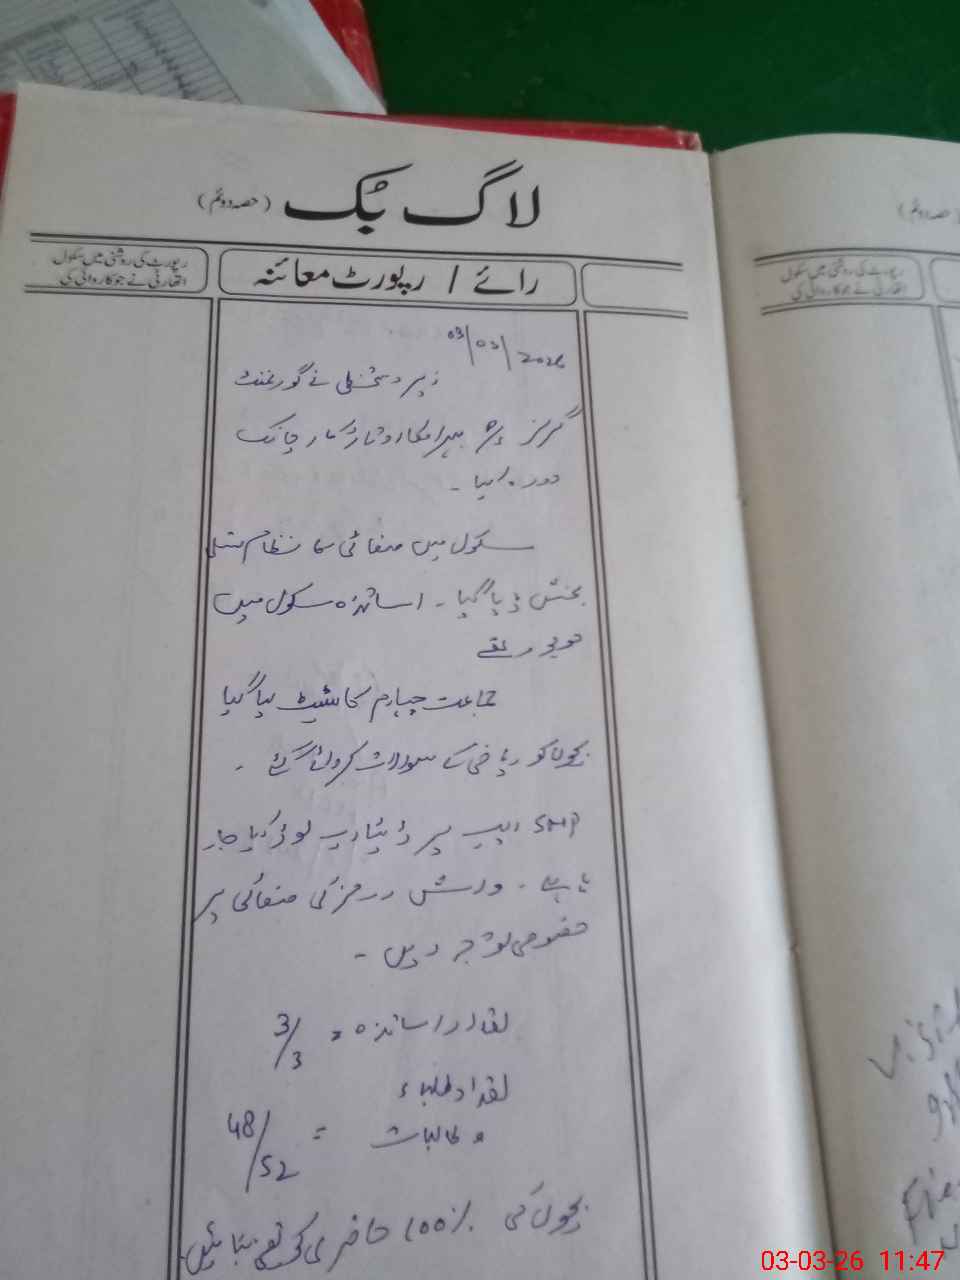 لاگ بُک (حصہ دوئم)
رائے / رپورٹ معائنہ
رپورٹ کی روشنی میں سکول
اتھارٹی نے جو کاروائی کی
03/03/2026
زیر دستخطی نے گورنمنٹ
گرلز
دورہ کیا ۔
سکول میں صفائی کا نظام تسلی
بخش پایا گیا ۔ اساتذہ سکول میں
موجود تھے
جماعت چہارم کا ٹیسٹ لیا گیا
بچوں کو ریاضی کے سوالات کروائے گئے ۔
SMP ایپ پر ڈیٹا اپ لوڈ کیا جار
ہا ہے ۔ واش رومز کی صفائی پر
خصوصی توجہ دیں ۔
تعداد اساتذہ = 3/3
تعداد طلباء
و طالبات = 48/52
بچوں کی 100% حاضری کو یقینی بنائیں
(حصہ دوئم)
رپورٹ کی روشنی میں سکول
اتھارٹی نے جو کاروائی کی
03-03-26 11:47